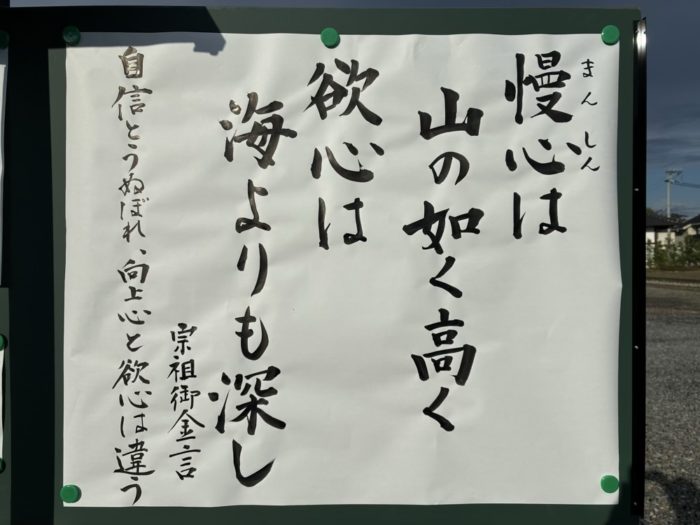 慢心は
まんしん
山の如く高く
欲心は
海よりも深し
宗祖御金言
自信とうぬぼれ、向上心と欲心は違う